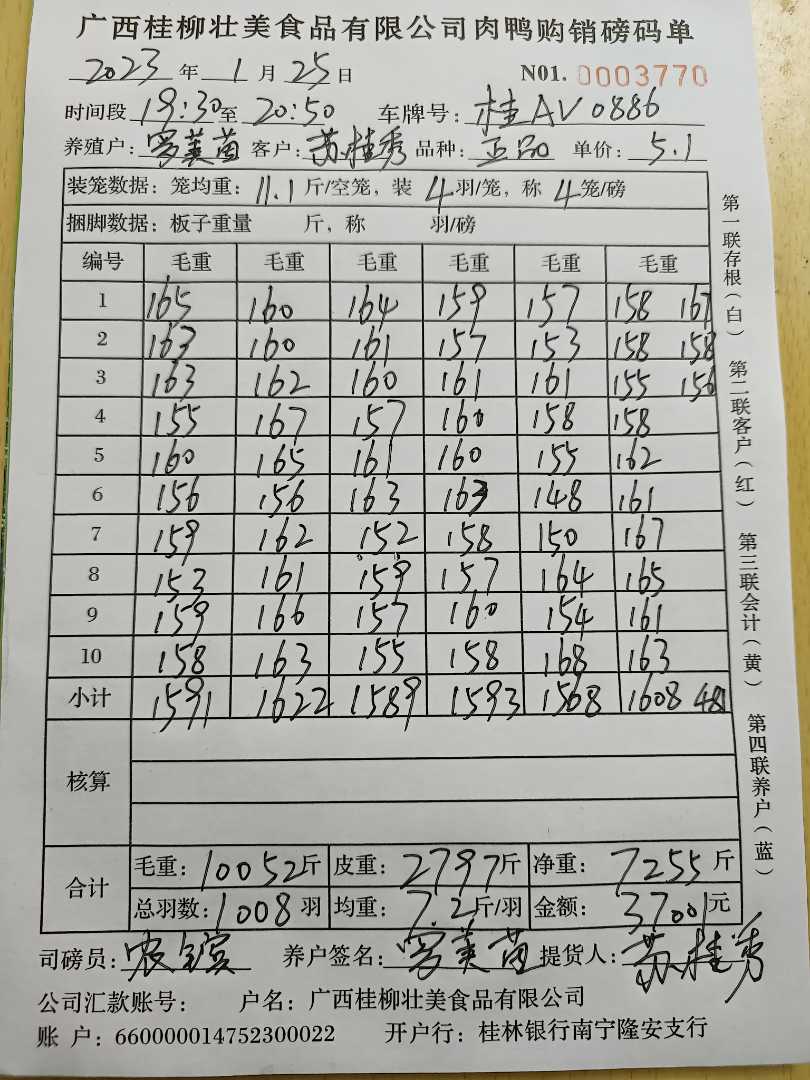 广西桂柳壮美食品有限公司肉鸭购销磅码单
2023 年 1 月 25 日 N01. 0003770
时间段 19:30 至 20:50 车牌号: 桂AV0886
养殖户: 美苗 客户: 苏桂秀 品种: 正品 单价: 5.1
装笼数据: 笼均重: 11.1 斤/空笼, 装 4 羽/笼, 称 4 笼/磅
捆脚数据: 板子重量 斤, 称 羽/磅
编号 毛重 毛重 毛重 毛重 毛重 毛重
1 165 160 164 159 157 158 167
2 163 160 161 157 153 158 158
3 163 162 160 161 161 155 156
4 155 167 157 160 158 158
5 160 165 161 160 155 162
6 156 156 163 163 148 161
7 159 162 152 158 150 167
8 153 161 159 157 164 165
9 159 166 157 160 154 161
10 158 163 155 158 168 163
小计 1591 1622 1589 1593 1568 1608 481
核算
合计 毛重: 10052 斤 皮重: 2797 斤 净重: 7255 斤
总羽数: 1008 羽 均重: 7.2 斤/羽 金额: 37001 元
司磅员: 养户签名: 美苗 提货人: 苏桂秀
公司汇款账号: 户名: 广西桂柳壮美食品有限公司
账 户: 660000014752300022 开户行: 桂林银行南宁隆安支行
第一联存根(白) 第二联客户(红) 第三联会计(黄) 第四联养户(蓝)